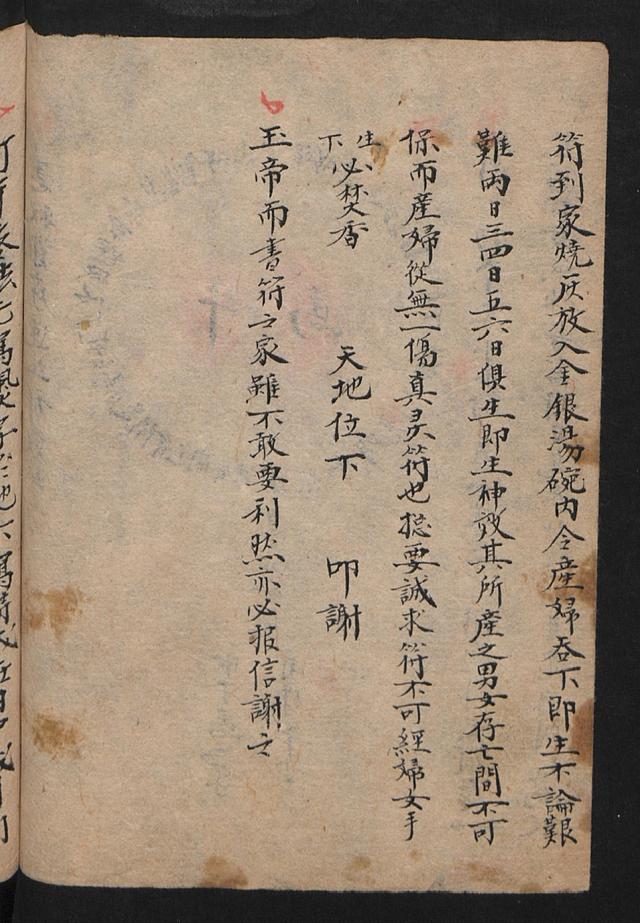 符到家燒灰放入金銀湯碗内令產婦吞下即生不論艱
難兩日三四日五六日俱生即生神效其所產之男女存亡間不可
保而產婦從無一傷真灵符也総要誠求符不可經婦女手
生下必焚香 天地位下 叩謝
玉帝而書符之家雖不敢要利然亦必報信謝之